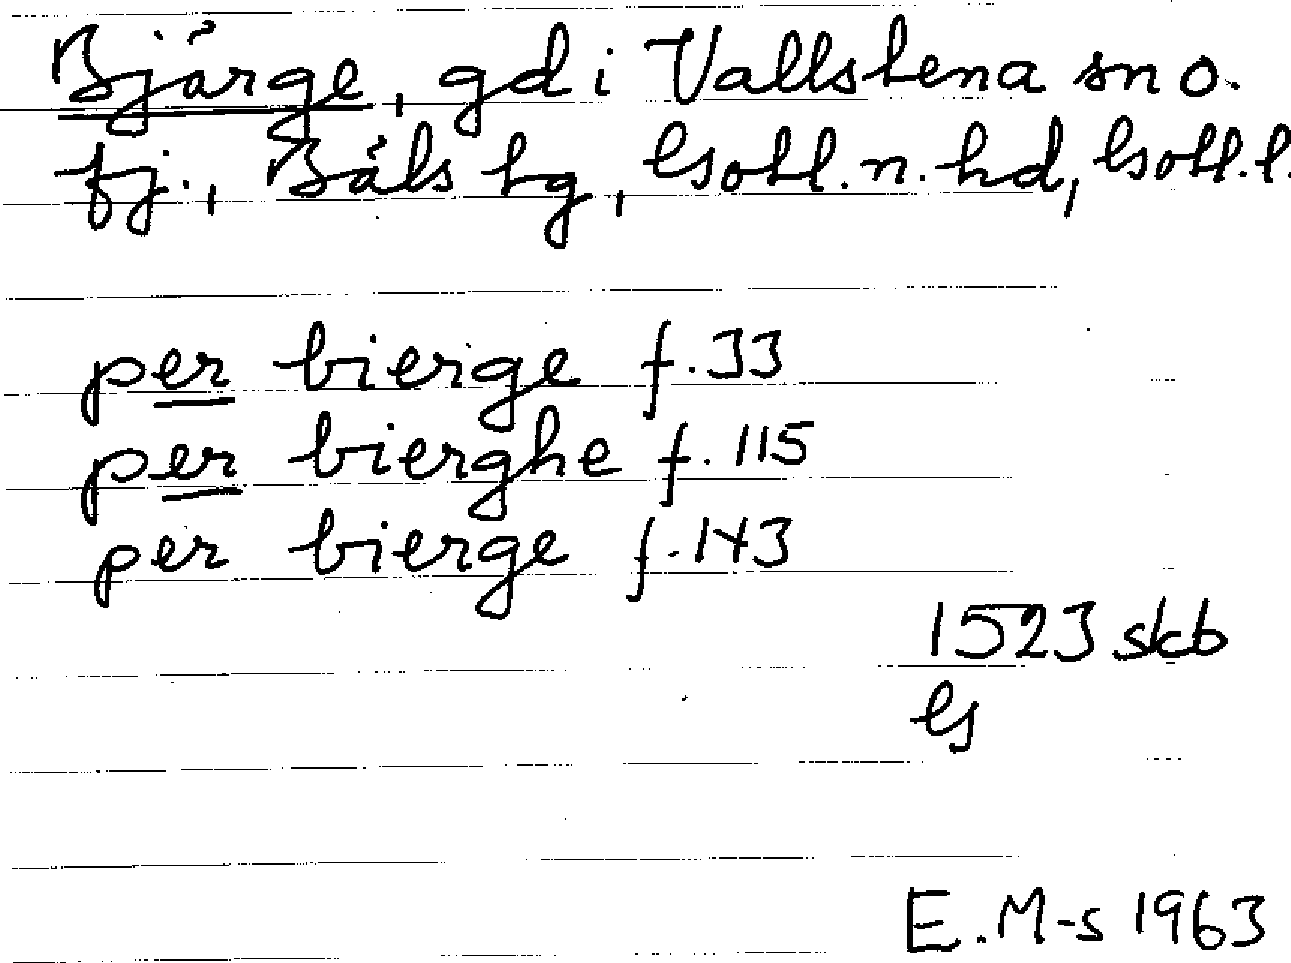 Bjärge, gd i Vallstena sn o.
fj., Bäls tg, Gotl. n. hd, Gotl. l.
per bierge f. 33
per bierghe f. 115
per bierge f. 143
1523 skb
G
E. M-s 1963